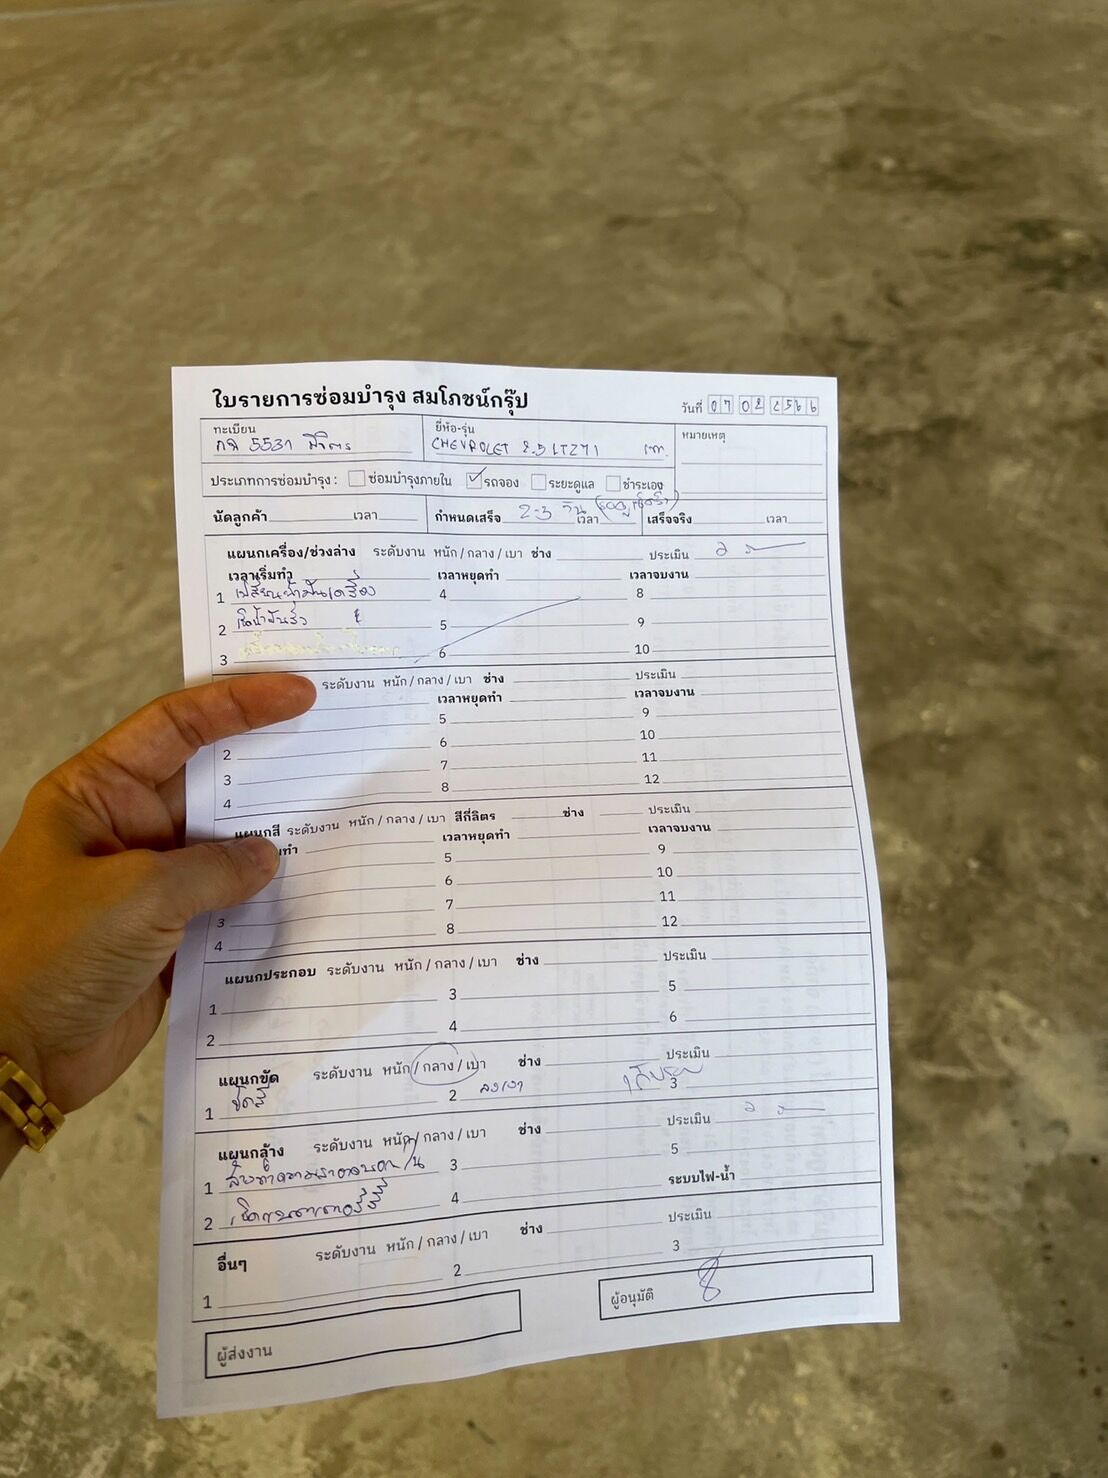 ใบรายการซ่อมบำรุง สมโภชน์กรุ๊ป
วันที่ 07 02 2566
ทะเบียน ยี่ห้อ-รุ่น หมายเหตุ
กจ 5531 พิจิตร CHEVROLET 2.5 LTZ71
ประเภทการซ่อมบำรุง : ซ่อมบำรุงภายใน ✓ รถจอง ระยะดูแล ชำระเอง
นัดลูกค้า เวลา กำหนดเสร็จ 2-3 วัน เวลา เสร็จจริง เวลา
แผนกเครื่อง/ช่วงล่าง ระดับงาน หนัก / กลาง / เบา ช่าง ประเมิน 2
เวลาเริ่มทำ เวลาหยุดทำ เวลาจบงาน
1 เปลี่ยนน้ำมันเครื่อง 4 8
2 5 9
3 6 10
ระดับงาน หนัก / กลาง / เบา ช่าง ประเมิน
เวลาหยุดทำ เวลาจบงาน
5 9
2 6 10
3 7 11
4 8 12
แผนกสี ระดับงาน หนัก / กลาง / เบา สีกี่ลิตร ช่าง ประเมิน
ทำ เวลาหยุดทำ เวลาจบงาน
5 9
6 10
3 7 11
4 8 12
แผนกประกอบ ระดับงาน หนัก / กลาง / เบา ช่าง ประเมิน
1 3 5
2 4 6
แผนกขัด ระดับงาน หนัก / กลาง / เบา ช่าง ประเมิน
1 ขัดสี 2 ลงเงา 3
แผนกล้าง ระดับงาน หนัก / กลาง / เบา ช่าง ประเมิน 2
1 3 5
2 4 ระบบไฟ-น้ำ
อื่นๆ ระดับงาน หนัก / กลาง / เบา ช่าง ประเมิน
1 2 3
ผู้ส่งงาน ผู้อนุมัติ